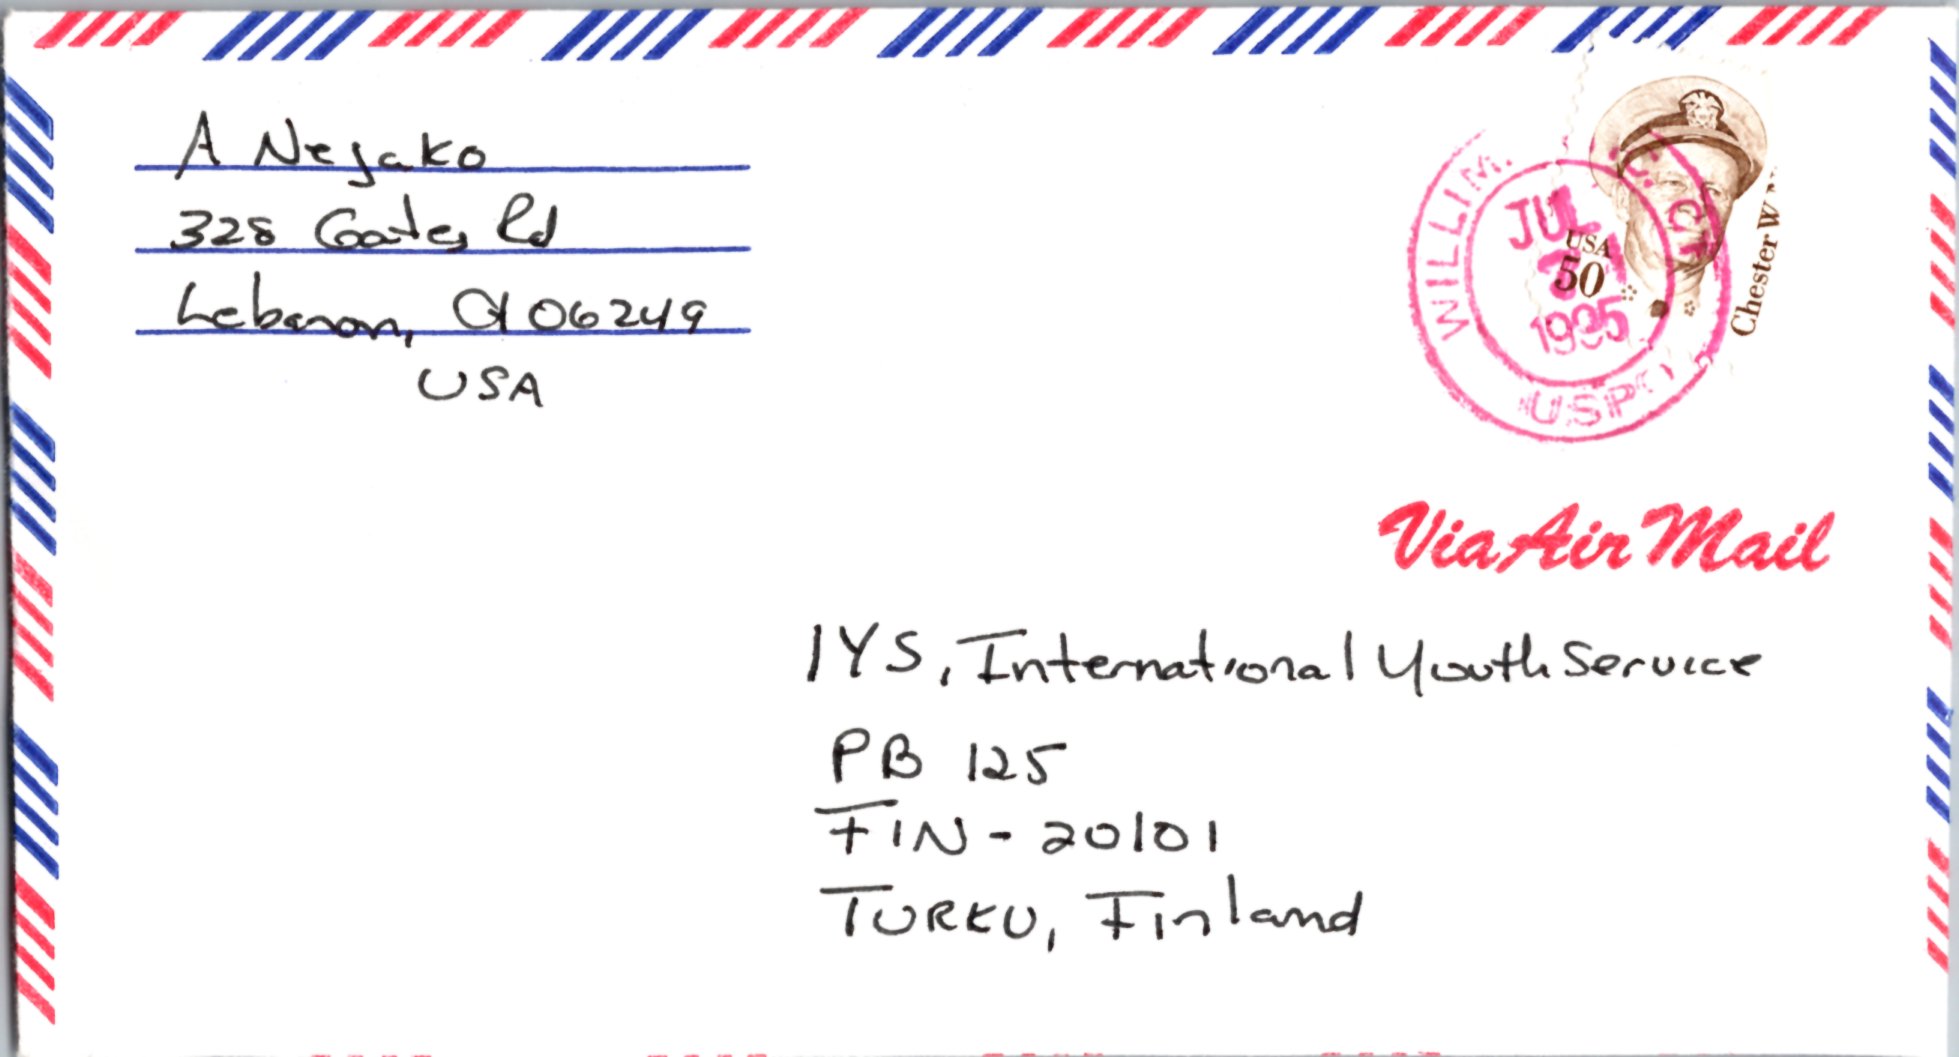 A Nejako
328 Gates Rd
Lebanon, Ct 06249
USA
WILLIM. CT
JUL
1995
USPO
USA
50
Chester W
Via Air Mail
IYS, International Youth Service
PB 125
FIN - 20101
TURKU, Finland